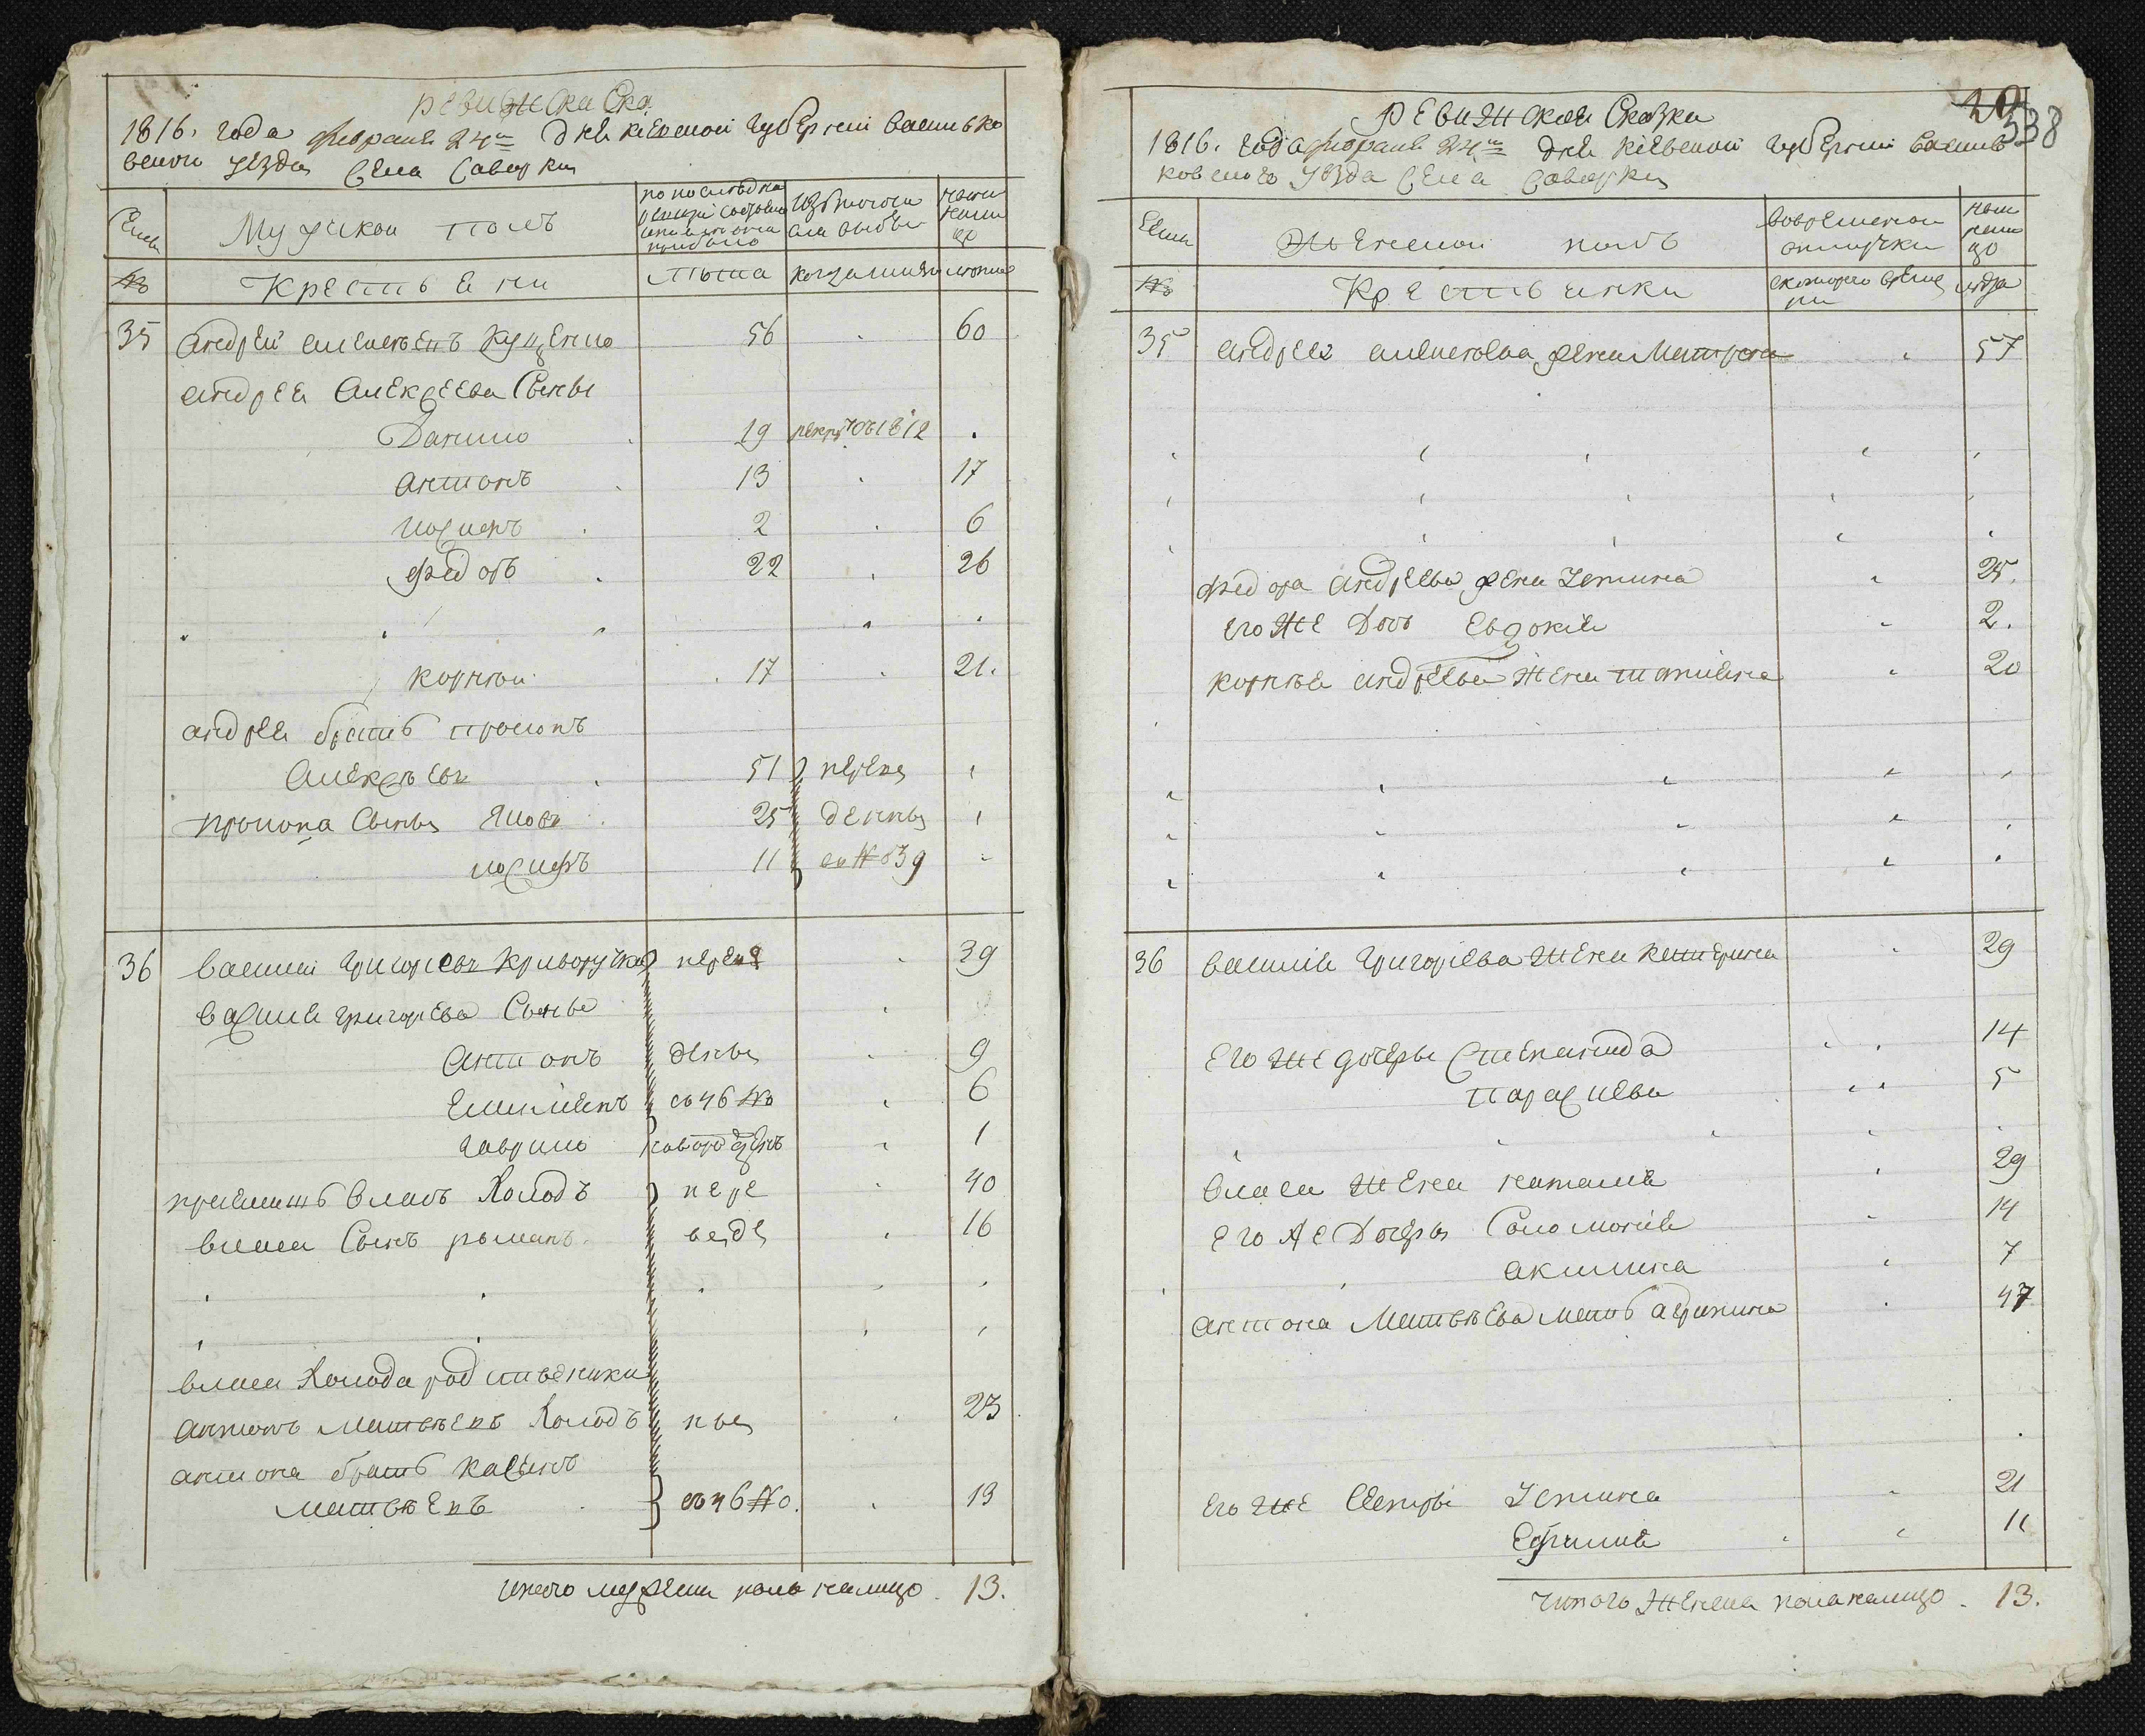 Ревижская Ска
1816. года февраля 24го дня Киевской губернии василько
вского уезда Села Саварки
Семьи
Мужской полъ
по последней ревизии состояло и после оной прибыло
Изъ того числа выбыло
ныне налицо
№
Крестьяни
лъта
когда имянно
лъта
35 Андрей Алексъевъ Куценко 56 60
Андрея Алексеева Сыновья
Данило 19 рекрутъ 1812
Антонъ 13 17
Иосифъ 2 6
Федоръ 22 26
Корнъй 17 21.
Андрея братъ прокопъ
Алексъевъ 51 переве
прокопа Сыновья Яковъ 25 дены
иосифъ 11 въ № 39
36 Василий Григориевъ Криворучка переве 39
Василия григориева Сыновья
Антонъ дены 9
Емилиянъ съ 46 № 6
Гаврило 1
приймитъ Власъ Холодъ пере 40
власа Сынъ романъ веде 16
власа Холода родственики
Антонъ Матвъевъ Холодъ ны 23
антона братъ Касянъ
Матвъевъ съ 46 №. 13
итого мужеска пола налицо. 13.
538
Ревижская Сказка
1816. года февраля 24го дня Киевской губернии василь
ковского уъзда Села Саварки
Семьи
Женской полъ
вовременной отлучки
ныне налицо
№
Крестьянки
скоторого времени
лъта
35 Андрея алексъева жена Матрона 57
Федора андреева жена Устина 25.
Его же Дочь Евдокия 2.
Корнъя андреева жена татияна 20
36 Василия Григориева жена Катерина 29
Его же дочеры Степанида 14
Парасцева 5
Власа жена наталия 29
Его же Дочеры Соломония 14
акилина 7
Антона Матвъева мать агрипина 47
Его же Сестры Устина 21
Ефимия 11
Итого женска пола налицо. 13.